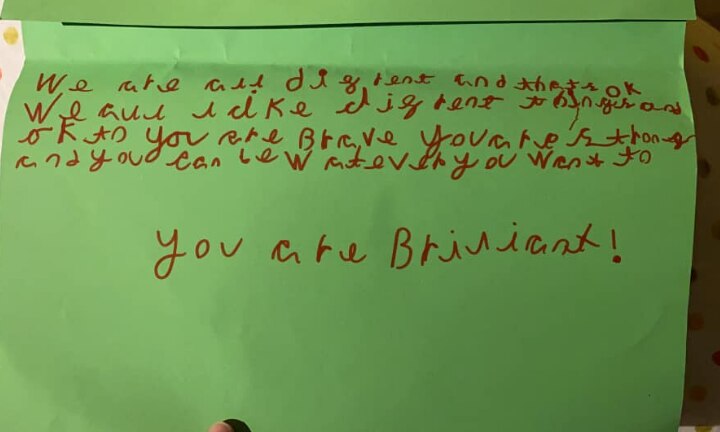 We are all digrent and thats ok
We all like digrent things and
ok to you are Brave you are strong
and you can be watever you want to
you are Briliant!